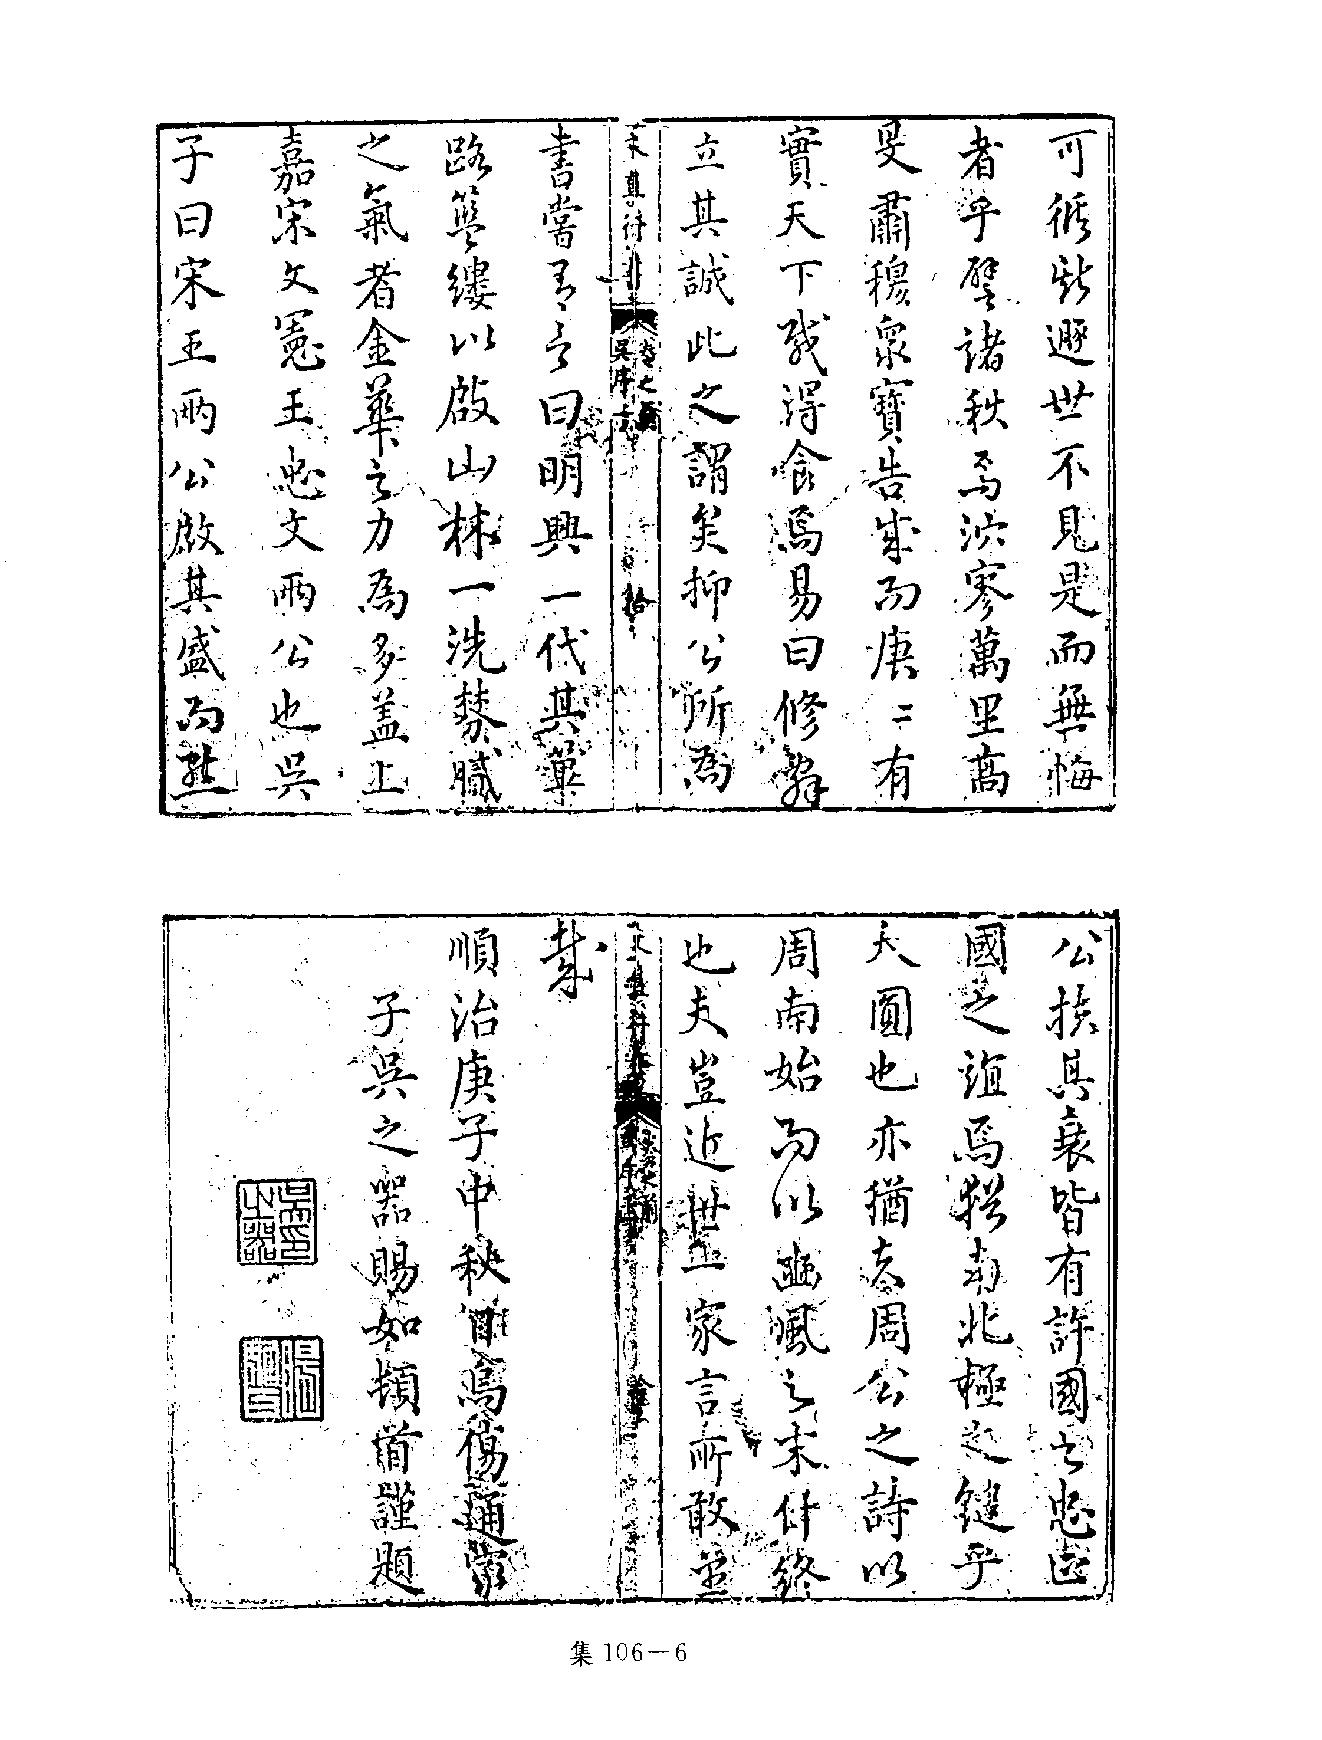 可循斯遯世不見是而無悔
者乎譬諸秋焉泬寥萬里高
旻肅穆衆寶告成而庚二有
實天下孰得食焉易曰修辭
立其誠此之謂矣抑公所爲
書嘗有言曰明興一代其蓽
路籃縷以啟山林一洗
之氣者金華之力爲多蓋上
嘉宋文憲王忠文兩公也吳
子曰宋王兩公啟其盛而熊
公扶其衰皆有許國之忠匡
國之誼焉猶南北極之鍵乎
天圓也亦猶夫周公之詩以
周南始而以豳風之末什終
也夫豈近世一家言所敢並
歟
順治庚子中秋日烏傷通家
子吳之器賜如頓首謹題
集 106－6